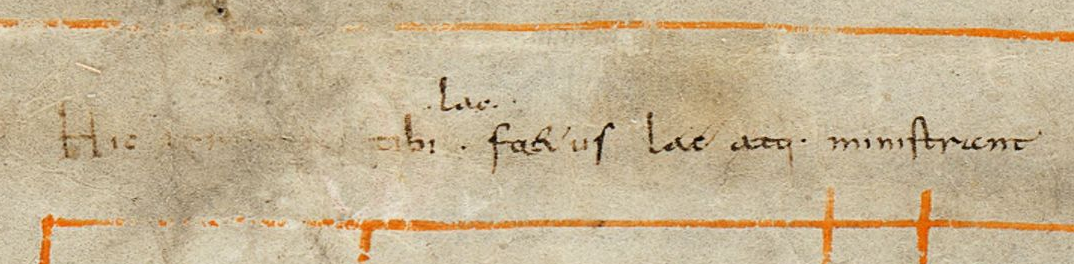 ·lac·
Hic tibi · fa&us lac atq· ministrant